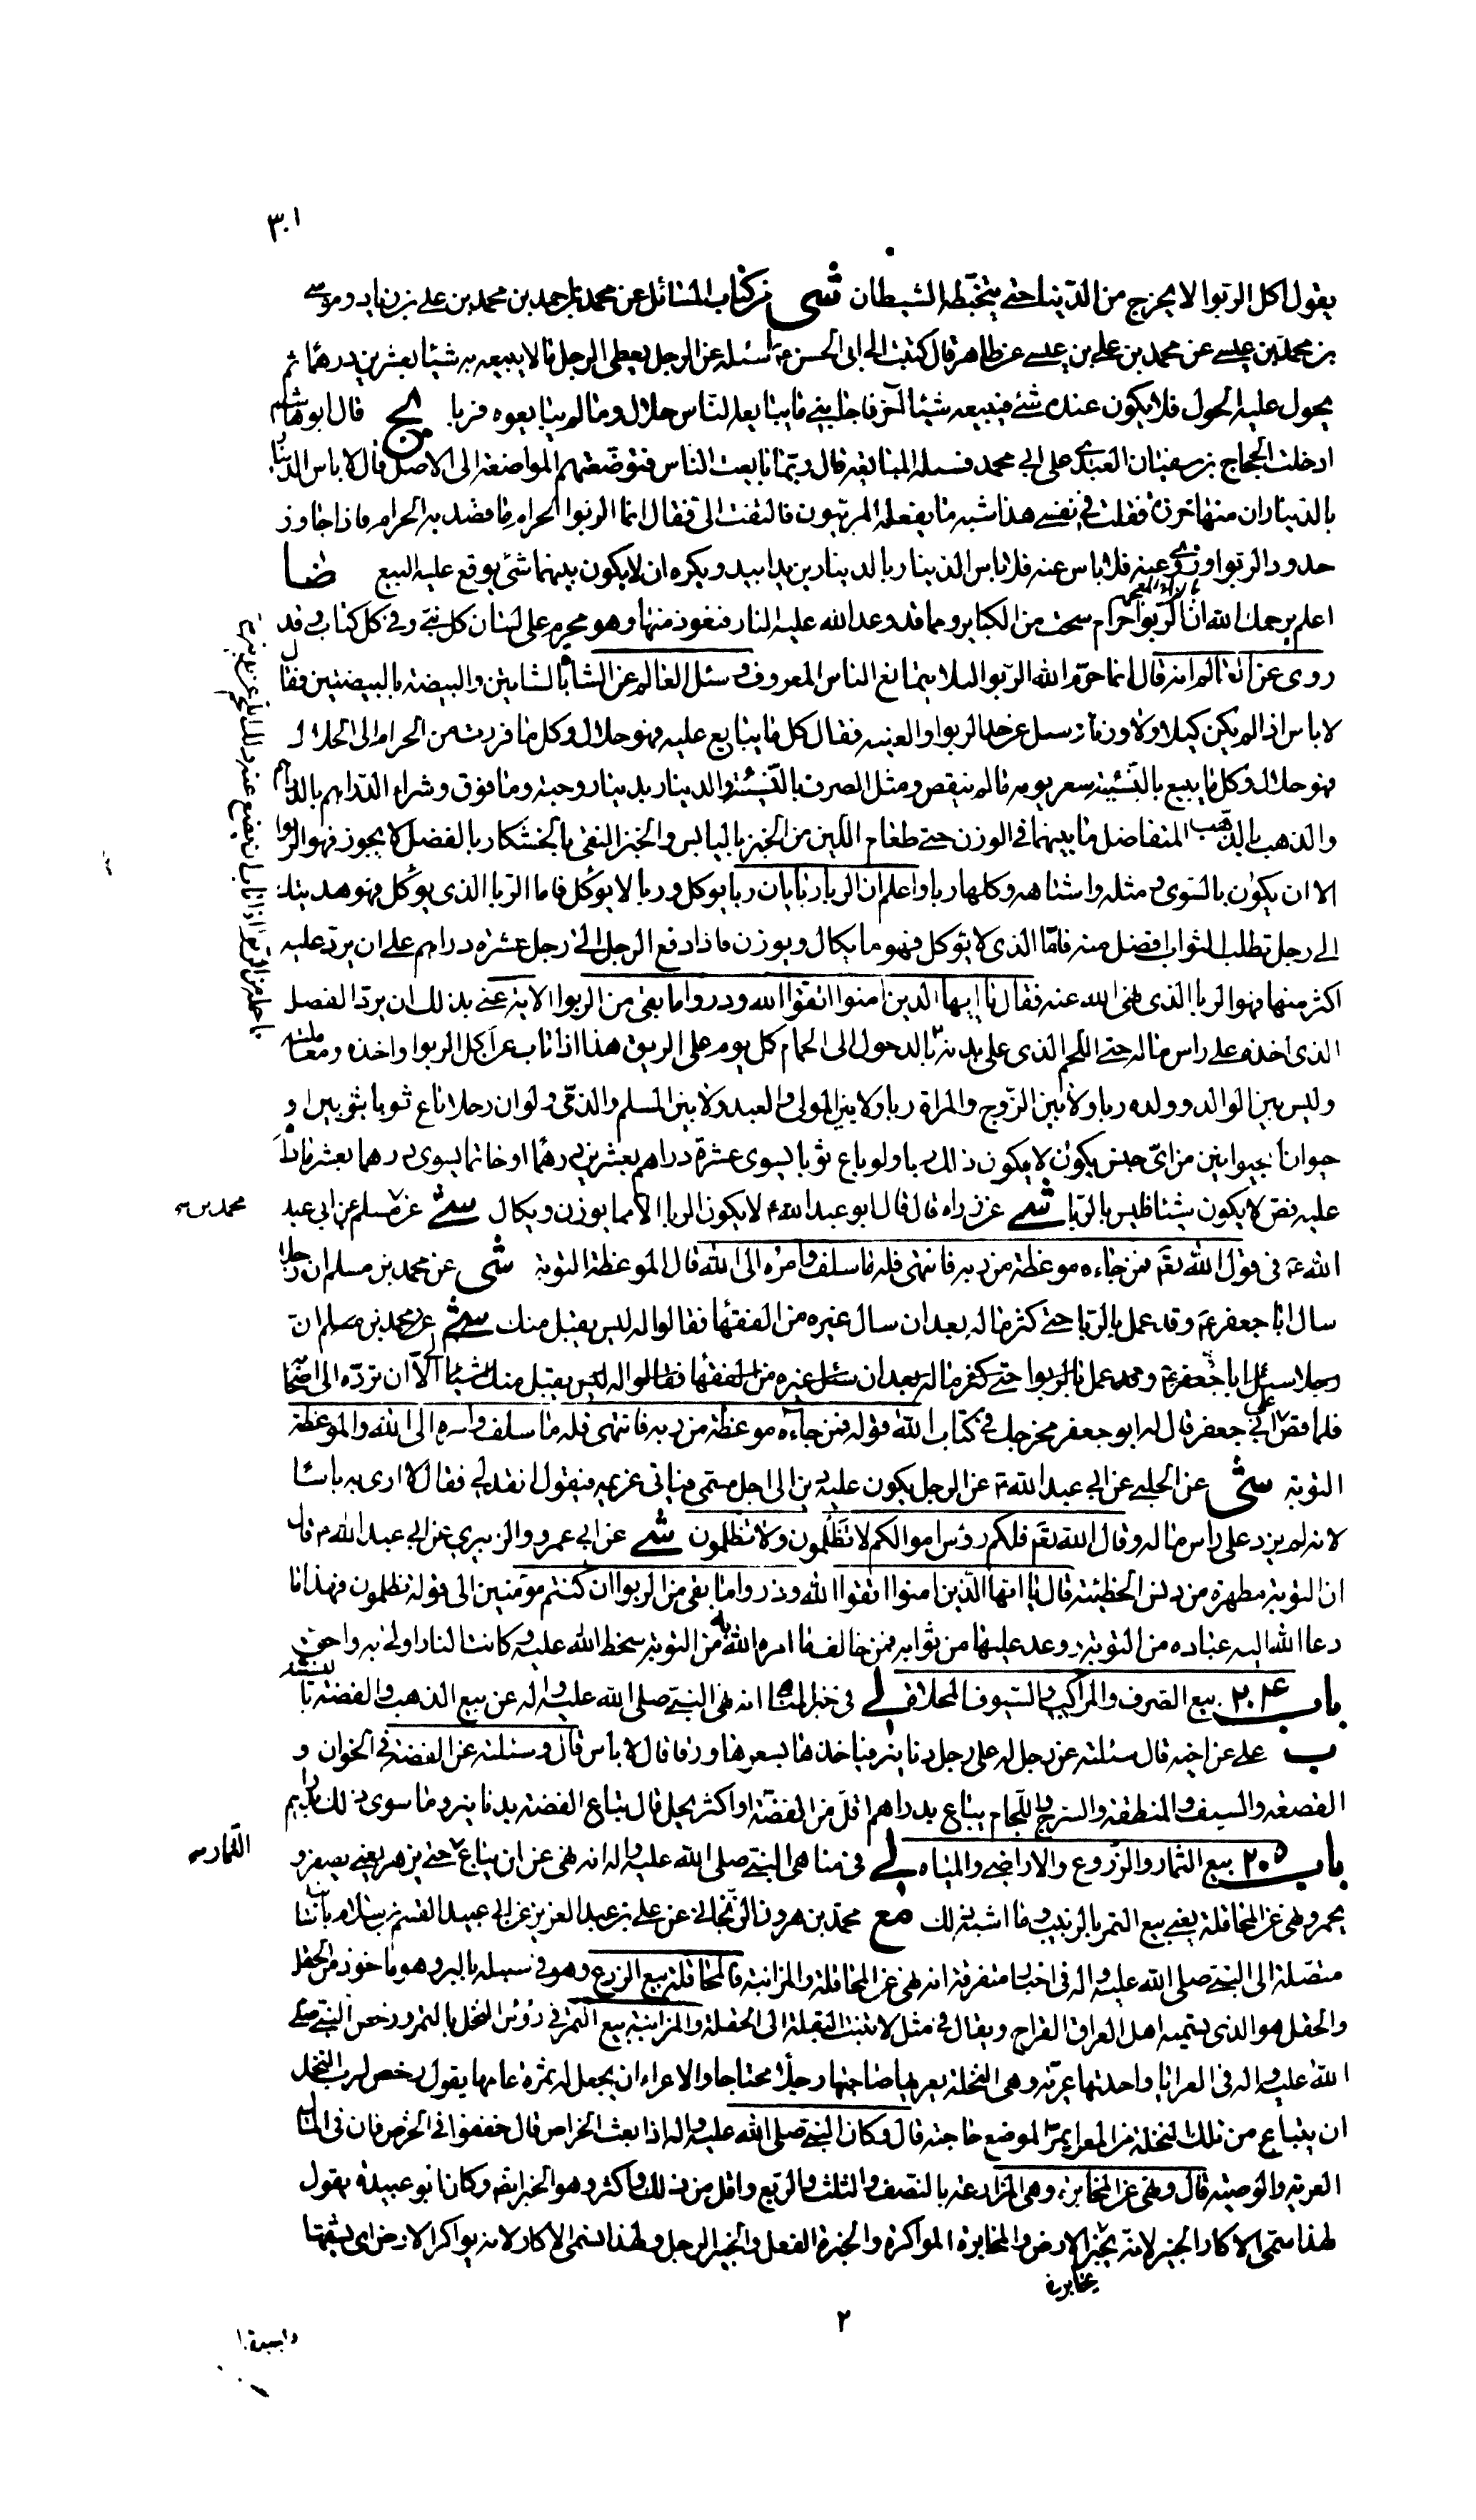 ٣٠١
يقول اكل الربوا لا يخرج من الدنيا حتى يتخبطه الشيطان شى من كتاب المسائل عن محمد بن احمد بن محمد بن علي بن زياد وموسى
بن محمد بن عيسى عن محمد بن علي بن عيسى عن طاهر قال كتبت الى ابى الحسن ع اسئله عن الرجل يعطى الرجل مالا يبيعه به شيئا بعشرين درهما ثم
يحول عليه الحول فلا يكون عنده شئ فيبيعه شيئا آخر فاجابني ما يتبايعه الناس حلال وما لم يتبايعوه فربا يج قال ابو هاشم
ادخلت الحجاج بن سفيان العبدى على ابى محمد فسئله المبايعة قال ربما بايعت الناس فتوضعتهم المواضعة الى الاصل قال لا باس الدينار
بالدينارين منهما خرزة فقلت في نفسي هذا شبه ما يفعله المربيون فالتفت الى فقال انما الربوا الحرام ما قصد به الحرام فاذا جاوز
حدود الربوا وزوى عنه فلا باس عنه فلا باس الدينار بالدينارين يدا بيد ويكره ان لا يكون بينهما شئ يوقع عليه البيع ضا
اعلم يرحمك الله ان الربوا حرام سحت من الكباير ومما قد وعد الله عليه النار فنعوذ منها وهو محرم على لسان كل نبي وفي كل كتاب وقد
روى عن العالم انه قال انما حرم الله الربوا لئلا يتمانع الناس المعروف و سئل العالم عن الشاة بالشاتين والبيضة بالبيضتين فقال
لا باس اذا لم يكن كيلا ولا وزنا و سئل عن حد الربوا والعينه فقال كل ما يتبايع عليه فهو حلال وكل ما فررت من الحرام الى الحلال
فهو حلال وكل ما يبيع بالنسيئة سعر يومه ما لم ينقص ومثل الصرف بالنسيئة والدينار بدينار وحبة وما فوق وشراء الدراهم بالدراهم
والذهب بالذهب المتفاضل ما بينهما في الوزن حتى طعام اللين من الخبز باليابس والخبز النقي بالخشكار بالفضل لا يجوز فهو الربوا
الا ان يكون بالسوى و مثله واشباهه وكلها ربا واعلم ان الربا ربايان ربا يوكل و ربا لا يؤكل فاما الربا الذى يؤكل فهو هديتك
الى رجل تطلب الثواب افضل منه فاما الذى لا يؤكل فهو ما يكال ويوزن فاذا دفع الرجل الى رجل عشره دراهم على ان يرد عليه
اكثر منها فهو الربا الذى نهى الله عنه فقال يا ايها الذين امنوا اتقوا الله وذروا ما بقى من الربوا الاية عنى بذلك ان يرد الفضل
الذى اخذه على راس ماله حتى اللحم الذى على بدنه بالدخول الى الحمام كل يوم على الريق هذا اذا تاب عن اكل الربوا واخذه ومعاملته
وليس بين الوالد وولده ربا ولا بين الزوج والمراة ربا ولا بين المولى والعبد ولا بين المسلم والذمى و لو ان رجلا باع ثوبا بثوبين او
حيوانا بحيوانين من اى جنس يكون لا يكون ذلك ربا ولو باع ثوبا يسوى عشرة دراهم بعشرين درهما او خاتما يسوى درهما بعشر مادام
عليه فص لا يكون شيئا فليس بالربا شى عن زراره قال قال ابو عبد الله ع لا يكون الربا الا مما يوزن ويكال شى عن مسلم عن ابى عبد
محمد بن
الله ع فى قول الله تع فمن جاءه موعظة من ربه فانتهى فله ما سلف وامره الى الله قال الموعظة التوبة شى عن محمد بن مسلم ان رجلا
سال ابا جعفر ع وقد عمل بالربا حتى كثر ماله بعد ان سال غيره من الفقهاء فقالوا له ليس يقبل منك شى عن محمد بن مسلم ان
رجلا سئل ابا جعفر ع وقد عمل بالربوا حتى كثر ماله بعد ان سئل غيره من الفقهاء فقالوا له ليس يقبل منك شيئا الا ان ترده الى اصحابه
فلما قص على ابى جعفر قال له ابو جعفر مخرجك فى كتاب الله قوله فمن جاءه موعظة من ربه فانتهى فله ما سلف وامره الى الله والموعظة
التوبة شى عن الحلبى عن ابى عبد الله ع عن الرجل يكون عليه دين الى اجل مسمى فياتى غريمه فيقول انقد لي فقال لا ارى به باسا
لانه لم يزد على راس ماله وقال الله تع فلكم رؤس اموالكم لا تظلمون ولا تظلمون شى عن ابى عمرو والزبيرى عن ابى عبد الله ع قال
ان التوبة مطهرة من دنس الخطيئة قال يا ايها الذين امنوا اتقوا الله وذروا ما بقى من الربوا ان كنتم مؤمنين الى قوله تظلمون فهذا ما
دعا الله اليه عباده من التوبة ووعد عليها من ثوابه فمن خالف ما امره الله به من التوبة سخط الله عليه و كانت النار اولى به واحق
باب ٢٠٤ بيع الصرف والمراكب والسيوف المحلاة لي فى خبر المناهى انه نهى النبي صلى الله عليه واله عن بيع الذهب والفضة بالنسيئة
ب على عن اخيه قال سئلته عن رجل له على رجل دنانير فياخذها بسعرها ورقا قال لا باس قال وسئلته عن الفضة فى الخوان و
القصعة والسيف والمنطقة والسرج واللجام يباع بدراهم اقل من الفضة او اكثر يحل قال يباع الفضة بدنانير وما سوى ذلك بدراهم
باب ٢٠٥ بيع الثمار والزروع والاراضى والمياه لي فى مناهى النبي صلى الله عليه واله انه نهى عن ان يباع حتى يزهر يعنى يصفر و
الثمار
يحمر ونهى عن المحاقلة يعنى بيع التمر بالزبيب وما اشبه ذلك مع محمد بن هرون الزنجانى عن علي بن عبد العزيز عن ابى عبيد القسم بن سلام باسانيد
متصلة الى النبى صلى الله عليه واله فى اخبار متفرقة انه نهى عن المحاقلة والمزابنة فالمحاقلة بيع الزرع وهو فى سنبله بالبر وهو ماخوذ من الحقل
والحقل هو الذى يسميه اهل العراق القراح ويقال فى مثل لا تنبت البقلة الا الحقلة والمزابنة بيع التمر فى رؤس النخل بالتمر ورخص النبى صلى
الله عليه واله فى العرايا واحدتها عرية وهى النخلة يعريها صاحبها رجلا محتاجا والاعراء ان يجعل له ثمرة عامها يقول رخص لرب النخل
ان يبتاع من تلك النخلة من المعرا بتمر لموضع حاجته قال وكان النبى صلى الله عليه واله اذا بعث الخراص قال خففوا فى الخرص فان فى المال
العرية والوصية قال ونهى عن المخابرة وهى المزارعة بالنصف والثلث والربع واقل من ذلك و اكثر وهو الخبر ايضا وكان ابو عبيدة يقول
لهذا سمى الاكار الخبير لانه يخبر الارض والمخابرة المواكرة والخبرة الفعل والخبير الرجل ولهذا سمى الاكار لانه يواكر الارض اى يشقها
مخابرة
٢